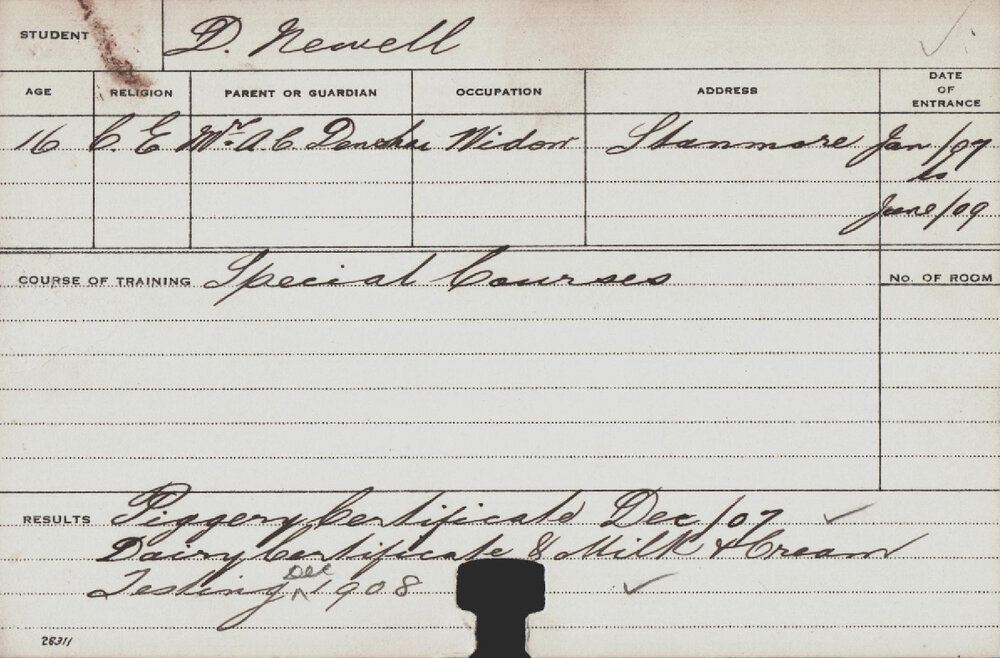 STUDENT D. Newell
AGE RELIGION PARENT OR GUARDIAN OCCUPATION ADDRESS DATE OF ENTRANCE
16 C. E A C Widow Stanmore Jan/07
to
June/09
COURSE OF TRAINING Special Courses No. OF ROOM
RESULTS Piggery Certificate Dec/07
Dairy Certificate & Milk & Cream
Testing Dec 1908
26311